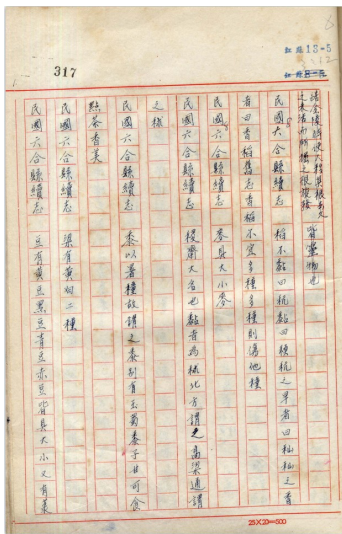 317
紅 縣 13-5
皆靈物也
民國六合縣續志 稻不黏曰秔黏曰稬秔之早者曰秈秈之香
者曰香稻舊志香稻不宜多種多種則傷他種
民國六合縣續志 麥具大小麥
民國六合縣續志 稷粟大名也黏者為秫北方謂之高梁通謂
之秫
民國六合縣續志 黍以暑種故謂之黍別有玉蜀黍子甘可食
絲茶香美
民國六合縣續志 梁有黃白二種
民國六合縣續志 豆有黃豆黑豆青豆赤豆皆具大小又有藁
25X20=500